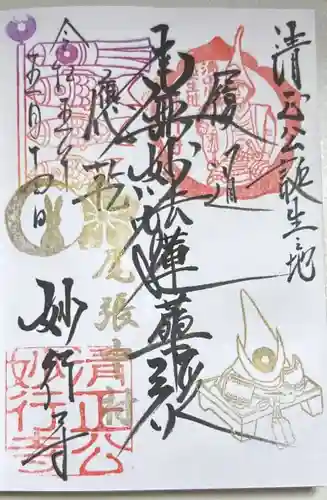 清正公誕生之地
履道
南無妙法蓮華経
應乾
令和五年
五月十四日
尾張中村
妙行寺
清正公
妙行寺